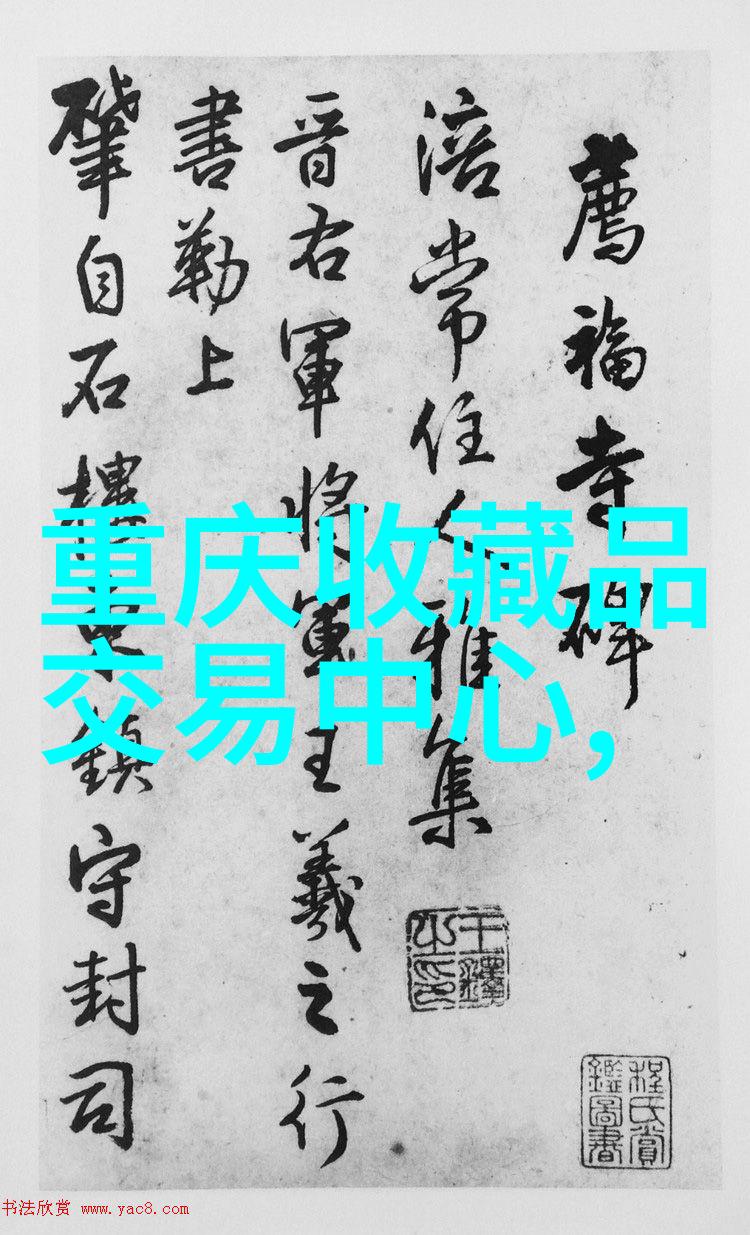 薦福寺碑
涪常住人雅集
晋右軍將軍王羲之行
書勒上
肇自石樓鎮守封司
王鐸之印
程氏賞鑑圖書
重庆收藏品
交易中心,
书法欣赏 www.yac8.com